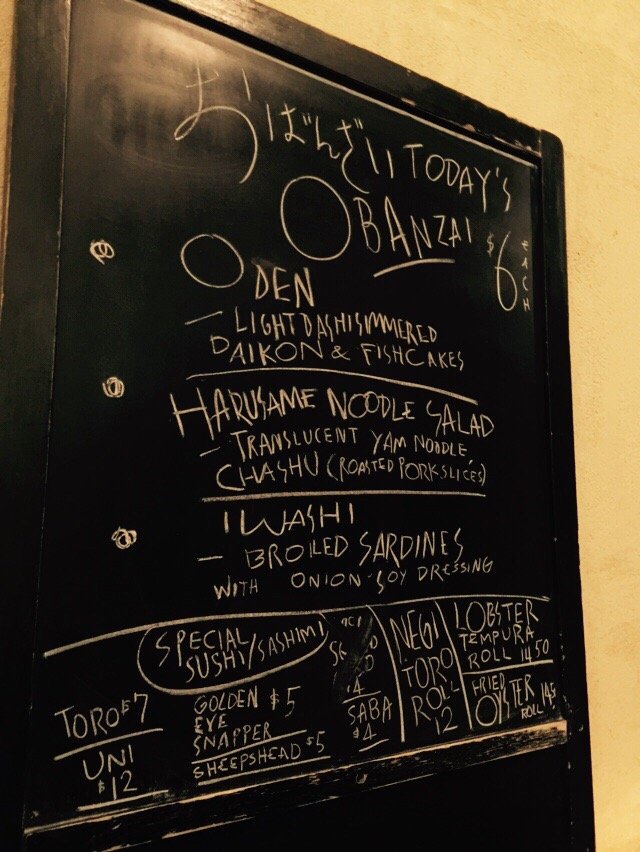 おばんざい TODAY'S
OBANZAI $6 EACH
ODEN
- LIGHT DASHI SIMMERED
DAIKON & FISHCAKES
HARUSAME NOODLE SALAD
- TRANSLUCENT YAM NOODLE
CHASHU (ROASTED PORK SLICES)
IWASHI
- BROILED SARDINES
WITH ONION-SOY DRESSING
SPECIAL
SUSHI/SASHIMI
TORO $7
UNI
$12
GOLDEN $5
EYE
SNAPPER
SHEEPSHEAD $5
14
SABA
$4
NEGI
TORO
ROLL
12
LOBSTER
TEMPURA
ROLL 14.50
FRIED
OYSTER
ROLL